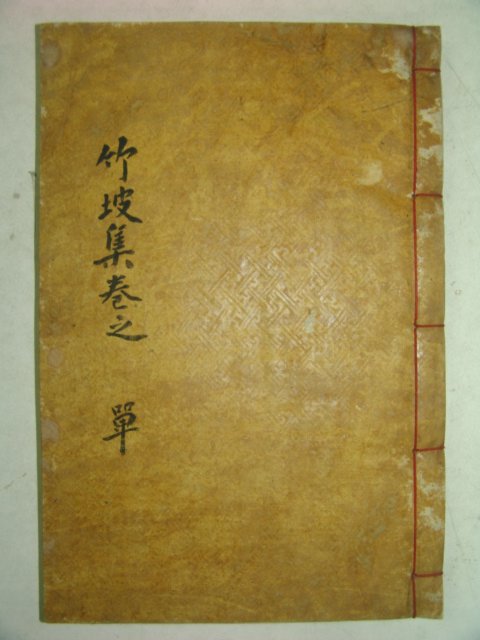 竹坡集卷之 單